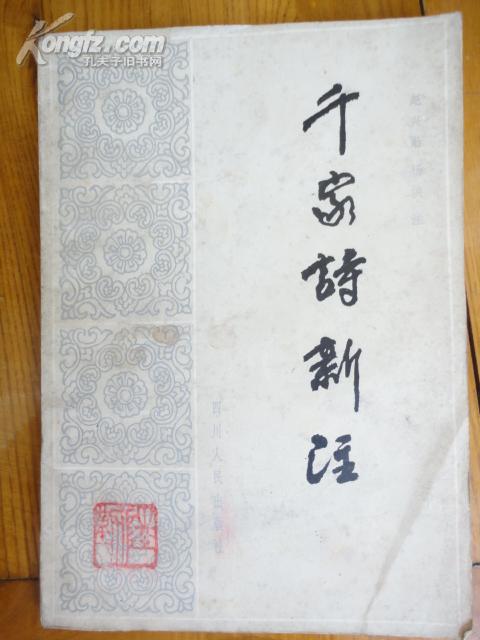 Kongfz.com
孔夫子旧书网
千家詩新注
四川人民出版社